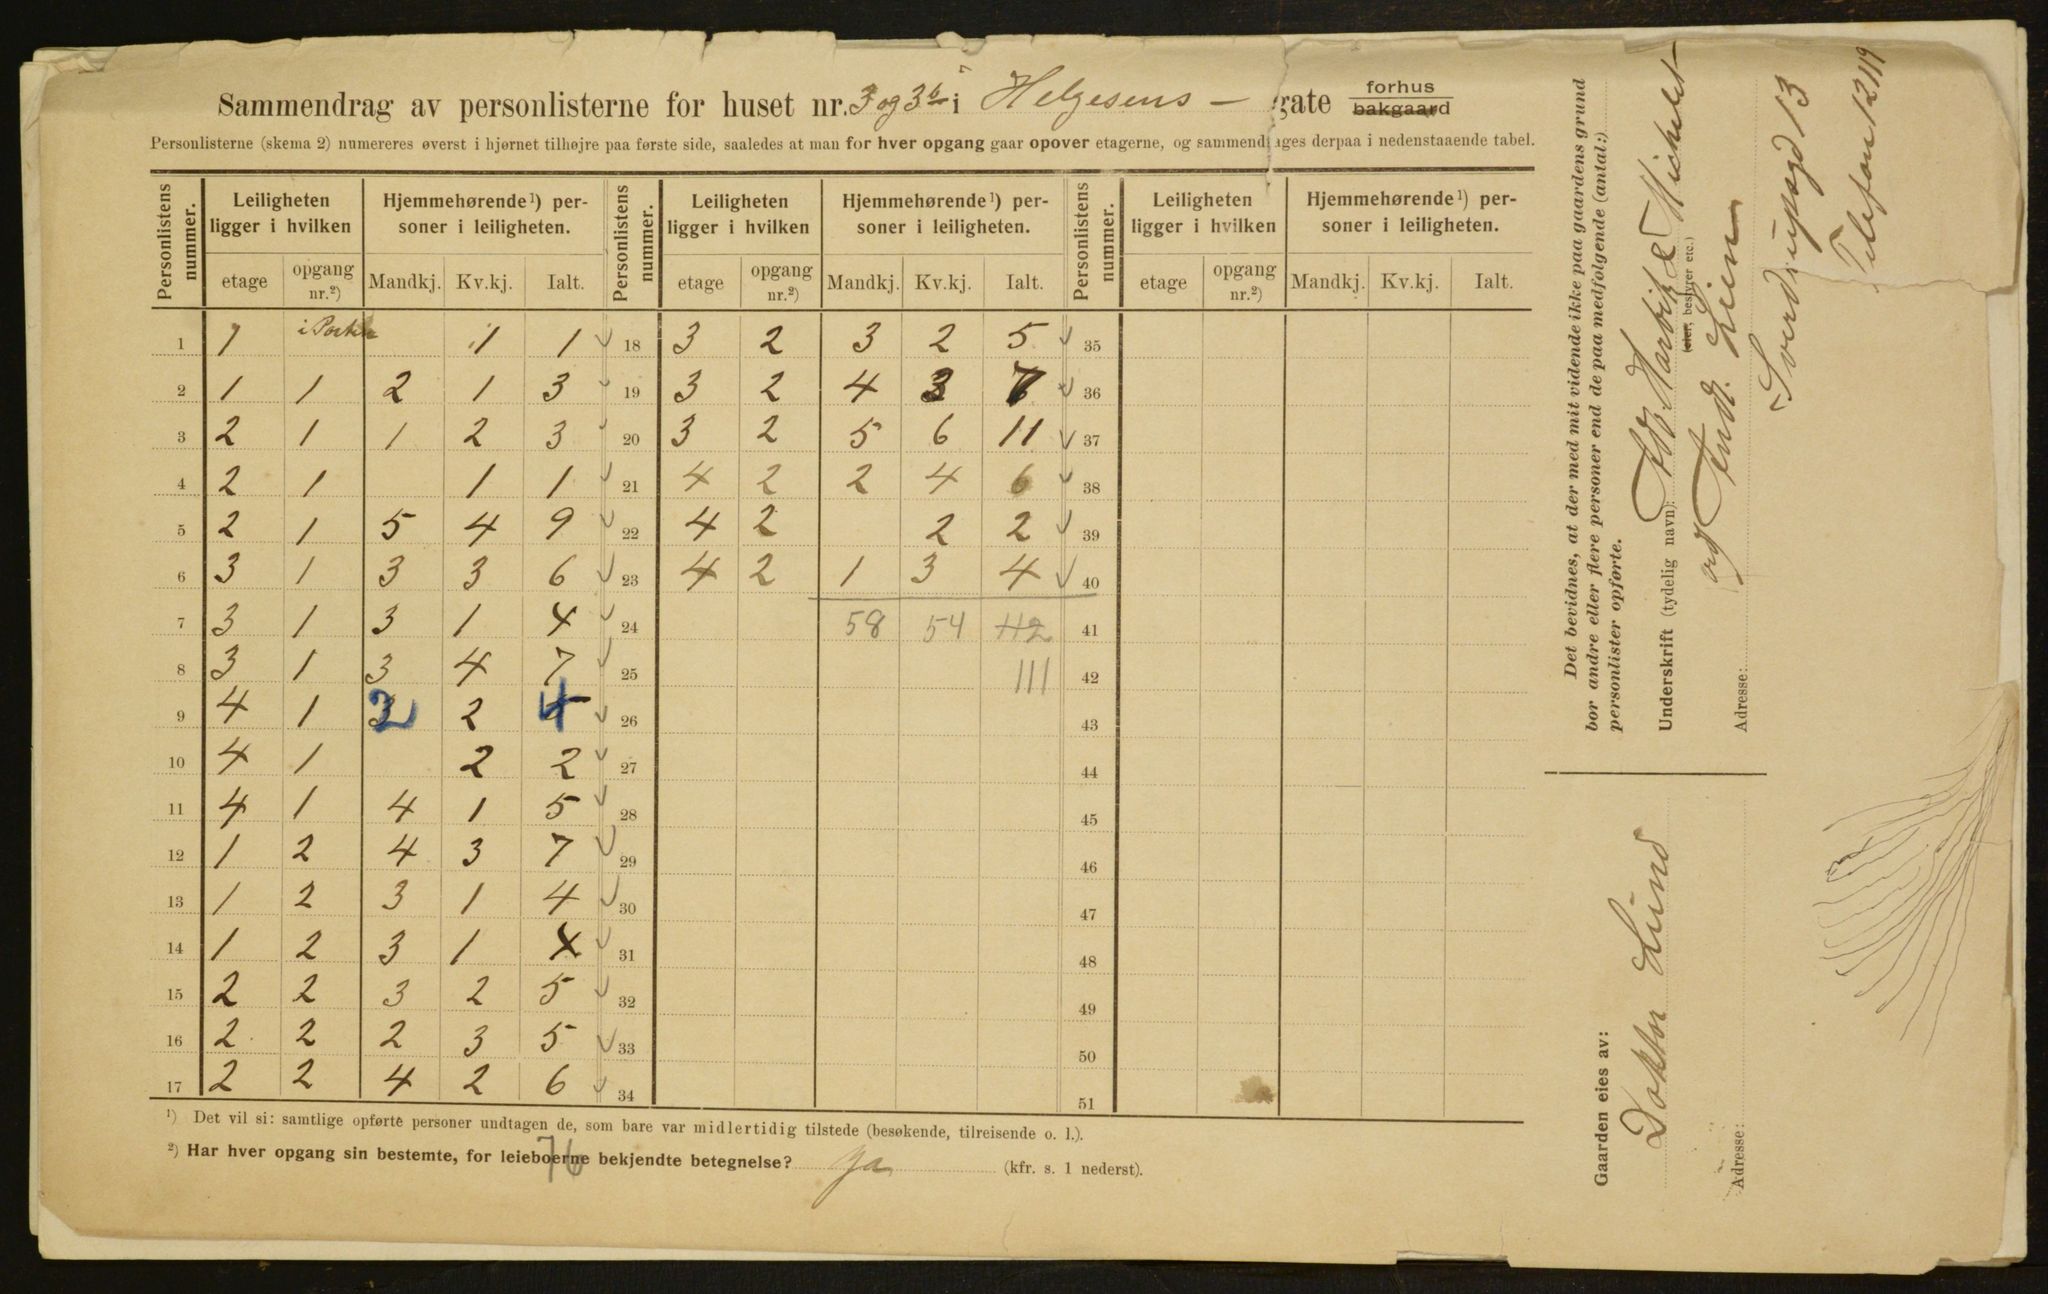 Sammendrag av personlisterne for huset nr. 3 og 3b i Helgesens - gate forhus bakgaard
Personlisterne (skema 2) numereres øverst i hjørnet tilhøjre paa første side, saaledes at man for hver opgang gaar opover etagerne, og sammendrages derpaa i nedenstaaende tabel.
Personlistens nummer. Leiligheten ligger i hvilken Hjemmehørende¹) personer i leiligheten. Personlistens nummer. Leiligheten ligger i hvilken Hjemmehørende¹) personer i leiligheten. Personlistens nummer. Leiligheten ligger i hvilken Hjemmehørende¹) personer i leiligheten.
etage opgang nr.²) Mandkj. Kv.kj. Ialt. etage opgang nr.²) Mandkj. Kv.kj. Ialt. etage opgang nr.²) Mandkj. Kv.kj. Ialt.
1 1 1 1 18 3 2 3 2 5 35
2 1 1 2 1 3 19 3 2 4 3 7 36
3 2 1 1 2 3 20 3 2 5 6 11 37
4 2 1 1 1 21 4 2 2 4 6 38
5 2 1 5 4 9 22 4 2 2 2 39
6 3 1 3 3 6 23 4 2 1 3 4 40
7 3 1 3 1 4 24 58 54 112 41
8 3 1 3 4 7 25 111 42
9 4 1 2 2 4 26 43
10 4 1 2 2 27 44
11 4 1 4 1 5 28 45
12 1 2 4 3 7 29 46
13 1 2 3 1 4 30 47
14 1 2 3 1 4 31 48
15 2 2 3 2 5 32 49
16 2 2 2 3 5 33 50
17 2 2 4 2 6 34 51
¹) Det vil si: samtlige opførte personer undtagen de, som bare var midlertidig tilstede (besøkende, tilreisende o. l.).
²) Har hver opgang sin bestemte, for leieboerne bekjendte betegnelse? Ja (kfr. s. 1 nederst).
76
Det bevidnes, at der med mit vidende ikke paa gaardens grund
bor andre eller flere personer end de paa medfølgende (antal:)
personlister opførte.
Underskrift (tydelig navn): Michelet
(eier, bestyrer etc.)
og Lien
Adresse: Sverdrupsgd 13
Telefon 12119
Gaarden eies av:
Doktor Lund
Adresse: